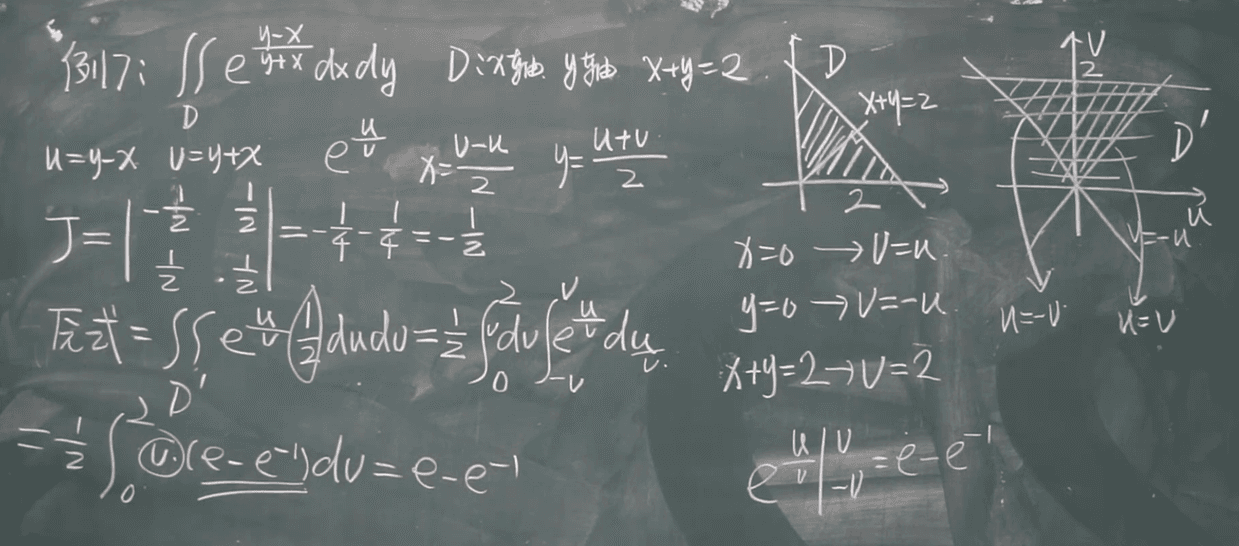 例7: ∬_D e^{\frac{y-x}{y+x}} dxdy D:x轴 y轴 x+y=2.
u=y-x v=y+x e^{\frac{u}{v}} x=\frac{v-u}{2} y=\frac{u+v}{2}
J=\begin{vmatrix}-\frac{1}{2} & \frac{1}{2} \\ \frac{1}{2} & \frac{1}{2}\end{vmatrix}=-\frac{1}{4}-\frac{1}{4}=-\frac{1}{2}
原式=∬_{D'} e^{\frac{u}{v}}(\frac{1}{2})dudv=\frac{1}{2}∫_0^2 vdv∫_{-v}^{v} e^{\frac{u}{v}} d\frac{u}{v}.
=\frac{1}{2}∫_0^2 v·(e-e^{-1})dv=e-e^{-1}
D
x+y=2
2
x=0 → v=u
y=0 → v=-u
x+y=2 → v=2
e^{\frac{u}{v}}|_{-v}^{v}=e-e^{-1}
v
2
D'
u
v=-u
u=-v
u=v